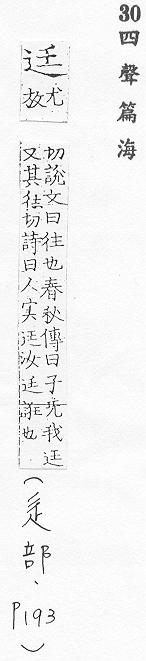 30四聲篇海
迋
尤放
切說文曰往也春秋傳曰子无我迋
又其往切詩曰人实迋汝迋誑也
(辵部、P193)